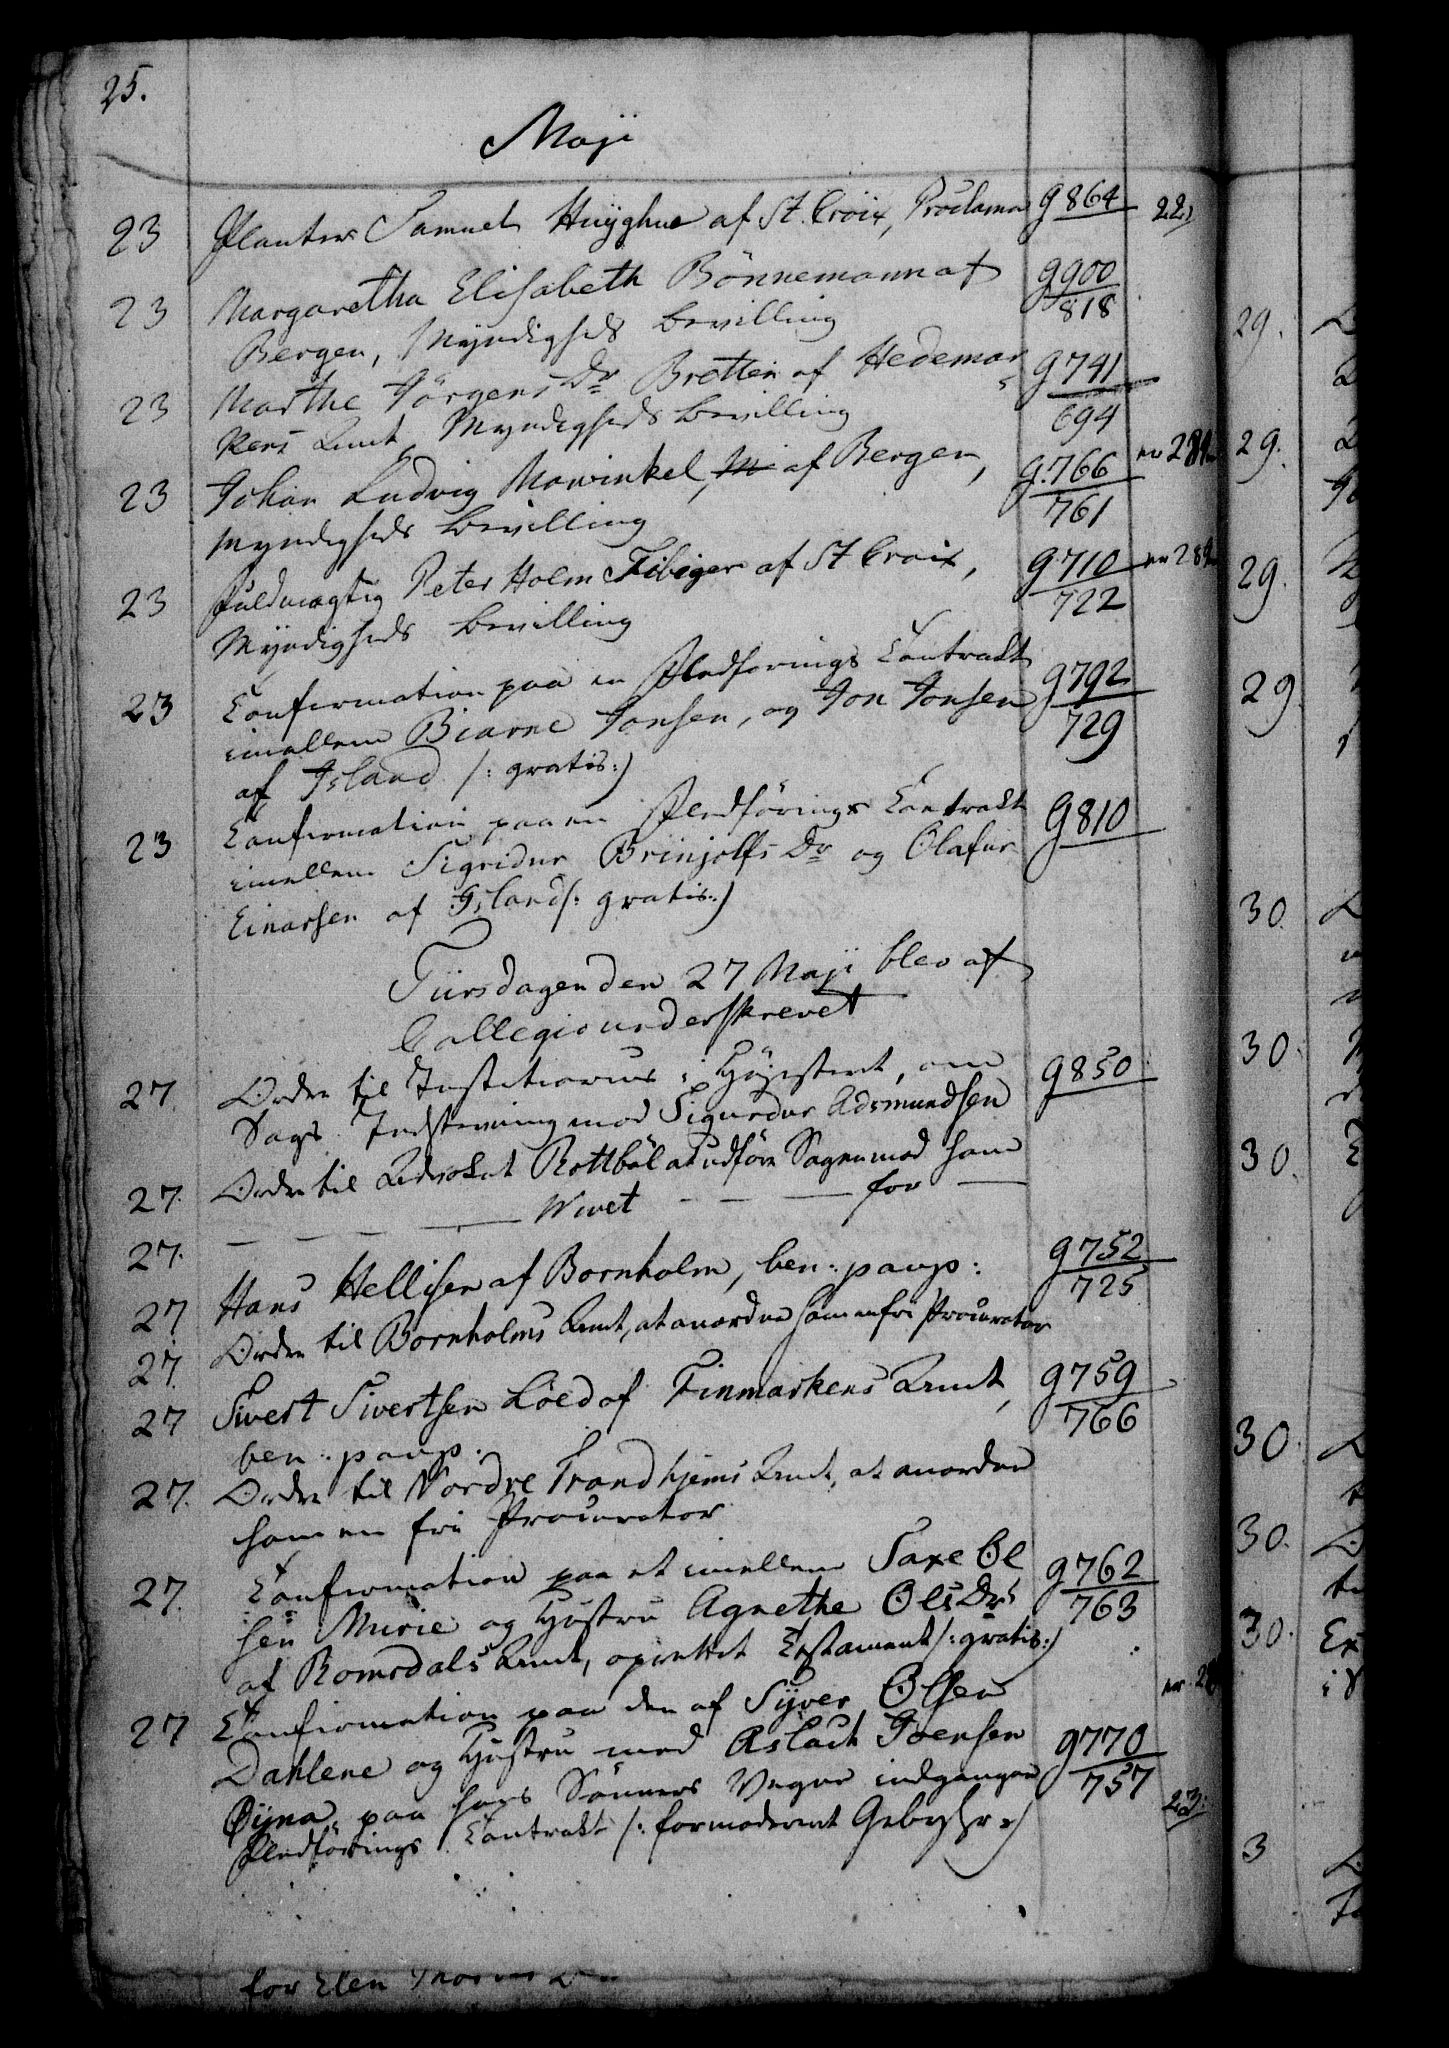 25.
Maji
23 Planter Samuel Huÿghue af St. Croix, Proclama g864 22)
23 Margaretha Elisabeth Bönnemann af g900
Bergen, Myndigheds Bevilling 818
23 Marthe Jörgens Dr Brötten af Hedemar g741
kens Amt, Myndigheds Bevilling 694
23 Johan Ludvig Mowinkel, af Bergen, g.766
Myndigheds Bevilling 761
23 Fuldmægtig Peter Holm Fibiger af St Croix, g710
Myndigheds Bevilling 722
23 Confirmation paa en Fledförings Contrakt g792
imellem Biarne Jonsen, og Jon Jonsen 729
af Island /: gratis :/
23 Confirmation paa en Fledförings Contrakt g810
imellem Sigridur Brinjolfs Dr og Olafur
Einarsen af Island /: gratis :/
Tiirsdagen den 27 Maji blev af
Collegio underskrevet
27. Ordre til Justitiarius i Höiesteret, om g850
Sags Indstevning mod Sigurdur Asmundsen
27. Ordre til Advokat Rottböl at udföre Sagen mod ham
27. — — — — Wivet — — — for —
27 Hans Hellisen af Bornholm, ben: paup: g752
725
27. Ordre til Bornholms Amt, at anordne ham en fri Procurator
27 Sivert Sivertsen Löed af Finmarkens Amt, g759
ben: paup. 766
27. Ordre til Nordre Trondhjems Amt, at anordne
ham en fri Procurator
27. Confirmation paa et imellem Saxe Ol g762
sen Murie og Hustru Agnethe Ols Dr 763
af Romsdals Amt, oprettet Testament /: gratis :/
27 Confirmation paa den af Syver Olsen
Dahlene og Hustru med Aslach Joensen g770
Öyna paa hans Sönners Vegne indgangne 757
Fledförings Contrakt /: formoderet Gebyhr :/ 23.
for Elen
29.
29.
29.
29
30.
30.
30.
30.
30.
30.
3